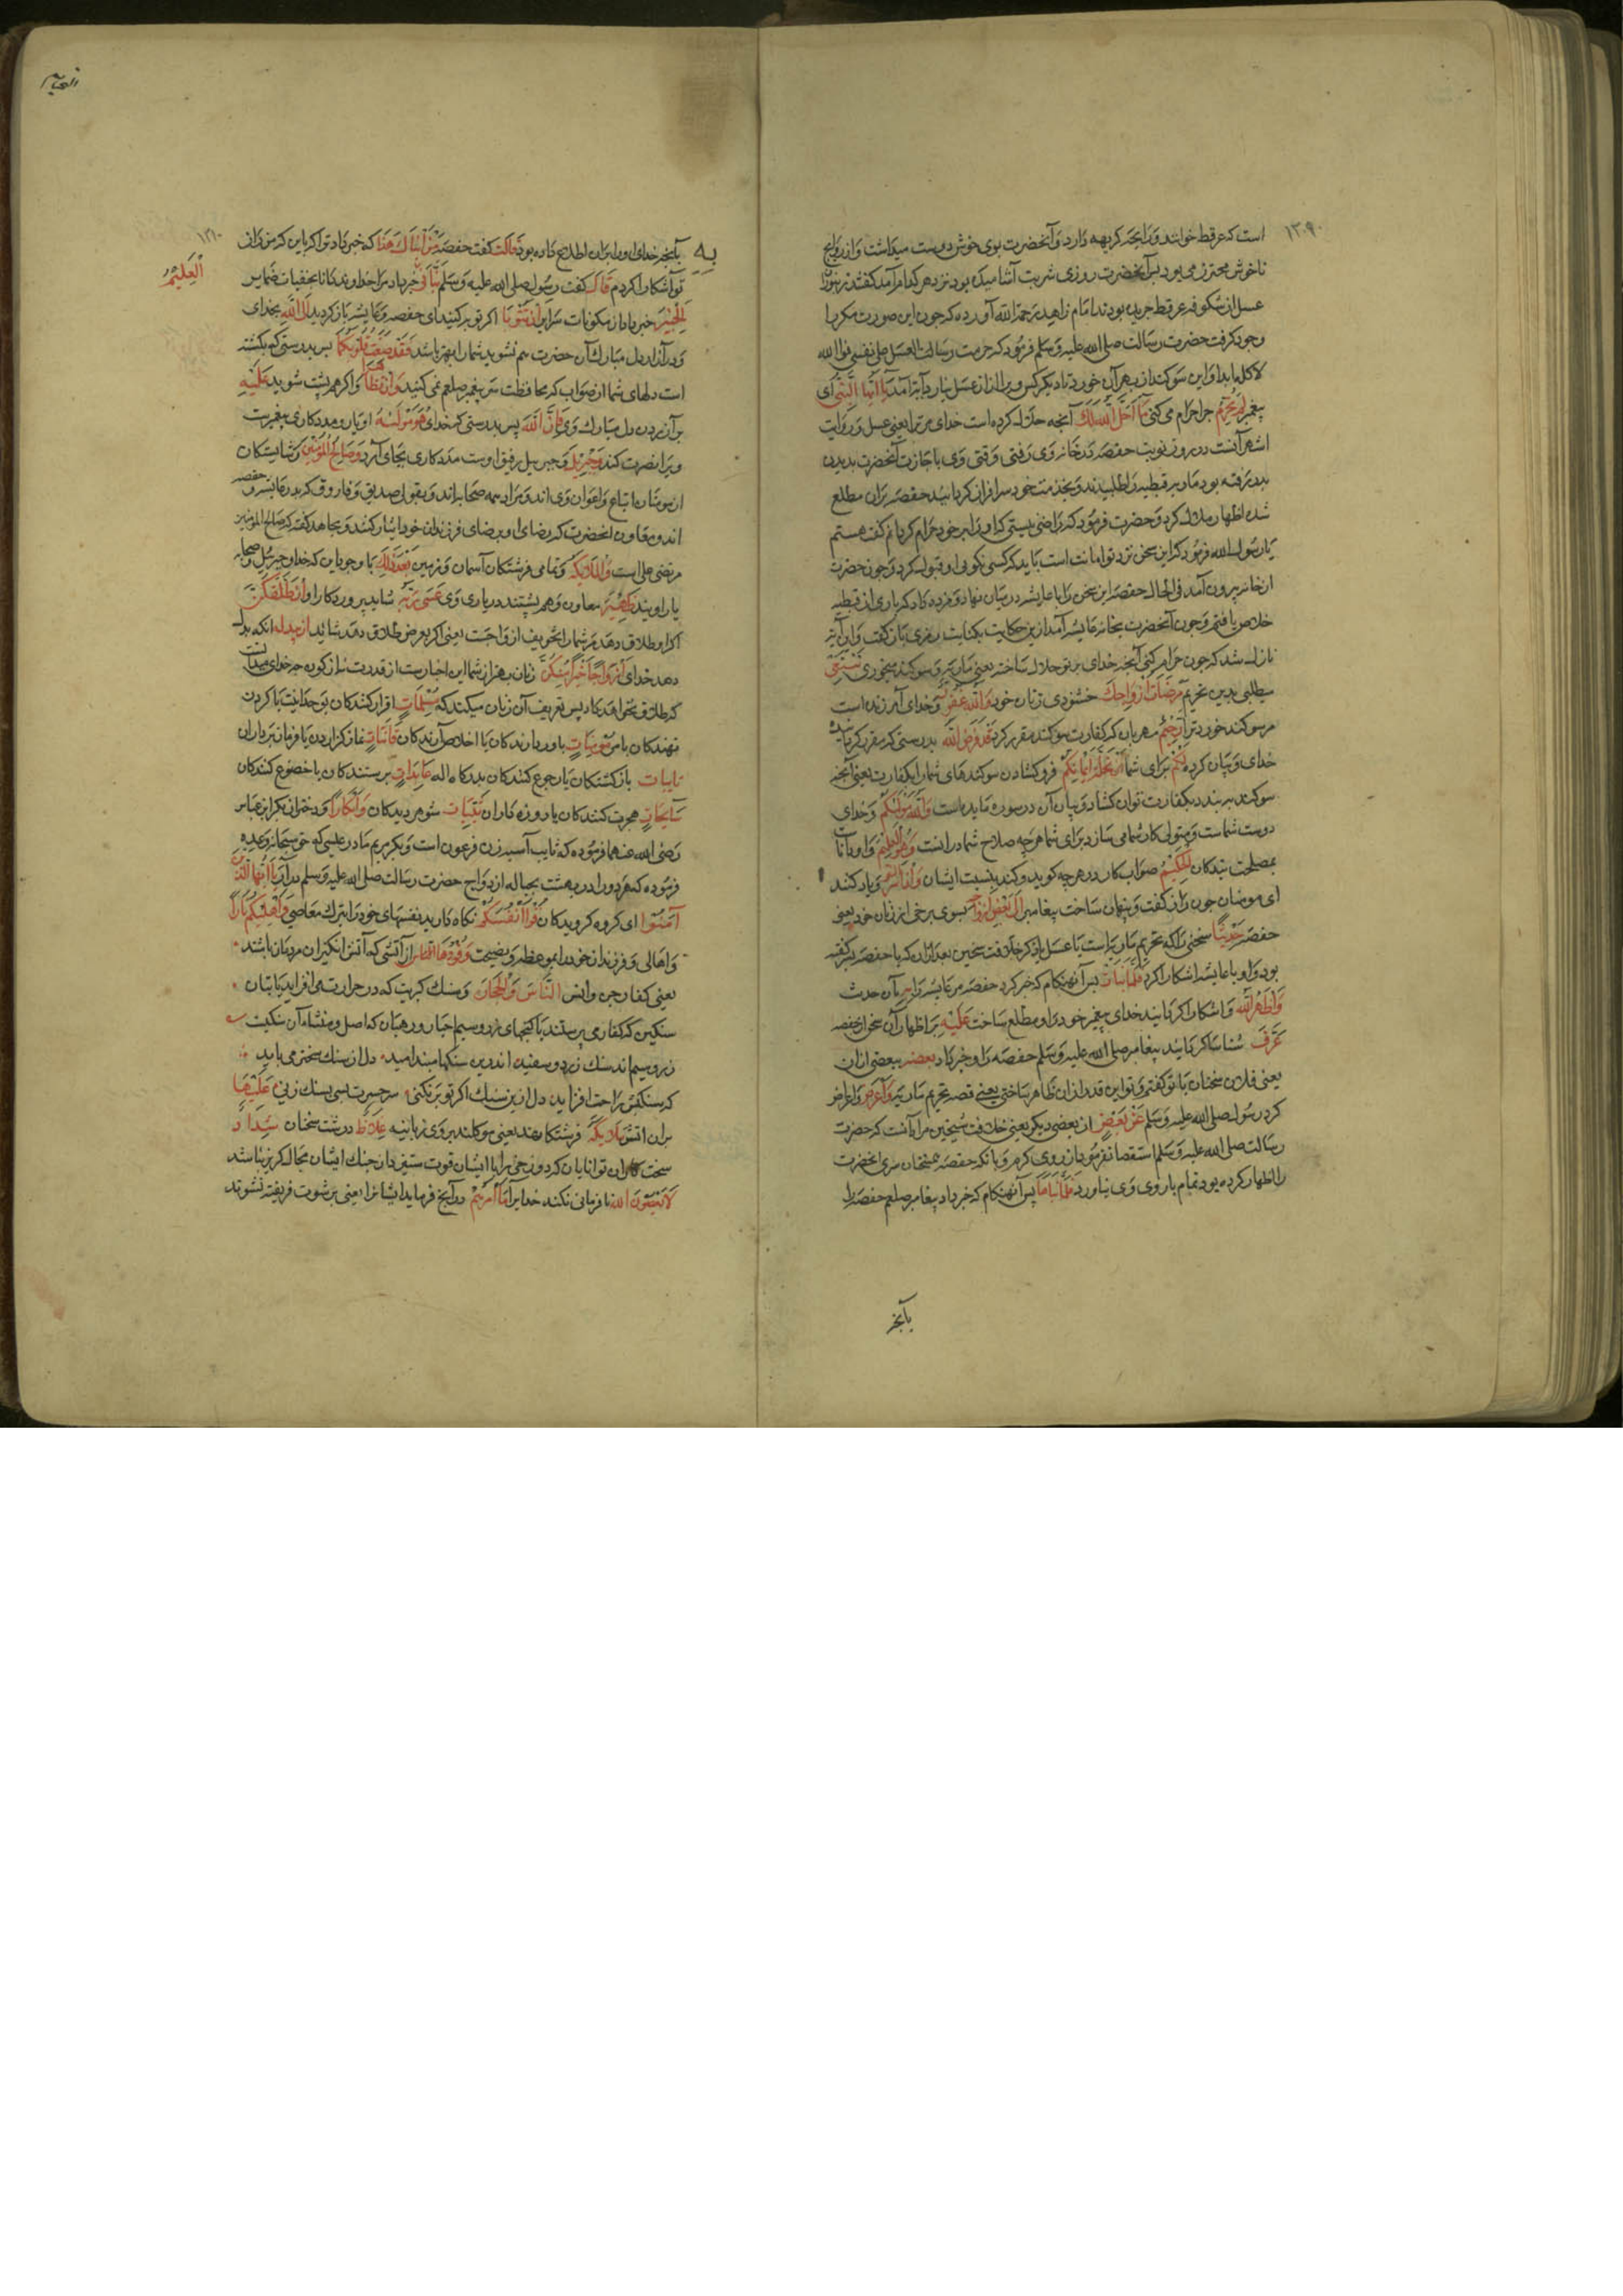 ١٣٠٩
است که عرفط خوانند و رایحه کریهه دارد و آنحضرت بوی خوش دوست میداشت و از روایح
ناخوش محترز می بود پس آنحضرت روزی شربت آشامیده بود نزد هر کدام آمد گفتند زنبور
عسل از شکوفه عرفط چریده بودند امام زاهد رحمة الله آورده که چون این صورت مکررا
وجود گرفت حضرت رسالت صلی الله علیه وسلم فرمود که حرمت العسل علی نفسی فوالله
لا اکله ابدا و این سوکند از بهر آن خورد تا دیگر کس ویرا از آن عسل نیارد آیة آمد یا ایها النبی ای
پیغمبر لم تحرم چرا حرام می کنی ما احل الله لک آنچه حلال کرده است خدای مر ترا یعنی عسل و روایت
اشهر آنست در روز نوبت حفصه در خانه وی رفتی وقتی وی باجازت آنحضرت بدیدن
پدر رفته بود ماریه قبطیه را طلبید و بخدمت خود سرافراز کردانید حفصه بران مطلع
شده اظهار ملال کرد و حضرت فرمود که راضی نیستی که او را بر خود حرام کردانم گفت هستم
یا رسول الله فرمود که این سخن نزد تو امانت است باید که کسی نگویی او قبول کرد و چون حضرت
از خانه بیرون آمد فی الحال حفصه این سخن را با عایشه در میان نهاد و مژده داد که باری از قبطیه
خلاص یافتیم و چون آنحضرت بخانه عایشه آمد ازین حکایت بکنایت رمزی باز گفت و این آیة
نازل شد که چون حرام کنی آنچه خدای بر تو حلال ساخته یعنی ماریه و سوکند میخوری تبتغی
میطلبی بدین تحریم مرضات ازواجک خشنودی زنان خود والله غفور و خدای آمرزنده است
مر سوکند خوردن ترا رحیم مهربان که کفارت سوکند مقرر کرد قد فرض الله بدرستی که مقرر کردانید
خدای و بیان کرده لکم برای شما تحلة ایمانکم فرو کشادن سوکندهای شما را بکفارت یعنی آنچه
سوکند بر بندد بکفارت توان کشاد و بیان آن در سوره مایده است والله مولیکم و خدای
دوست شماست و متولی کار شما می سازد برای شما هر چه صلاح شما در انست وهو العلیم و او دانا
بمصلحت بندکان الحکیم صواب کار در هر چه کوید و کند بنسبت ایشان واذ اسر و یاد کنید
ای مومنان چون راز گفت و پنهان ساخت پیغامبر الی بعض ازواجه بسوی برخی از زنان خود یعنی
حفصه حدیثا سخنی را که تحریم ماریه است یا عسل یا ذکر خلافت شیخین بعد ازان که با حفصه سر گفته
بود و او با عایشه اشکارا کرد فلما نبات پس آنهنکام که خبر کرد حفصه مر عایشه را به بآن حدیث
واظهره الله و اشکارا کردانید خدای پیغمبر خود را و مطلع ساخت علیه بر اظهار آن سخن از حفصه
عرف شناسا کردانید پیغامبر صلی الله علیه وسلم حفصه را و خبر داد بعضه ببعضی ازان
یعنی فلان سخنان با تو گفتم و تو این قدر ازان ظاهر ساختی یعنی قصه تحریم ماریه واعرض و اعراض
کرد رسول صلی الله علیه وسلم عن بعض از بعضی دیگر یعنی خلافت شیخین مراد آنست که حضرت
رسالت صلی الله علیه وسلم استقصا نفرمود از روی کرم و با آنکه حفصه سخنان سری آنحضرت
را اظهار کرده بود تمام با روی وی نیاورد فلما نباها پس آنهنکام که خبر داد پیغامبر صلعم حفصه را
بآنچه
١٣١٠
به بآنچه خدای او را بران اطلاع داده بود قالت گفت حفصه من انباک هذا که خبر داد ترا که باین که من راز
تو آشکارا کردم قال گفت رسول صلی الله علیه وسلم نبانی خبر داد مرا خداوند دانا بخفیات ضمایر
العلیم
الخبیر خبردار از مکنونات سرایر ان تتوبا اگر توبه کنید ای حفصه و عایشه و باز کردید الی الله بخدای
و در آزار دل مبارک آن حضرت هم نشوید شما را بهتر باشد فقد صغت قلوبکما پس بدرستی که بکشته
است دلهای شما از صواب که محافظت سر پیغمبر صلعم نمی کنید وان تظاهرا و اگر هم پشت شوید علیه
بر آزردن دل مبارک وی فان الله پس بدرستی که خدای هو مولیه او یار و مددکار پیغمبرست
ویرا نصرت کند وجبریل و جبرییل رفیق اوست مددکاری بجای آرد وصالح المؤمنین و شایستکان
از مومنان اتباع و اعوان وی اند و مراد همه صحابه اند و بقولی صدیق و فاروق که پدر عایشه و حفصه
اند و معاون آنحضرت که رضای او بر رضای فرزندان خود ایثار کنند و مجاهد گفته که صالح المؤمنین
مرتضی علی است والملایکة و تمامی فرشتکان آسمان و زمین بعد ذلک با وجود این که خدای و جبرییل و صحابه
یار اویند ظهیر معاون و هم پشتند در یاری وی عسی ربه شاید پروردکار او ان طلقکن
اگر او طلاق دهد مر شما را تخویف ازواجست یعنی اگر بعرض طلاق دهد شاید ان یبدله انکه بدل
دهد خدای ازواجا خیرا منکن زنان بهتر از شما این اخبارست از قدرت نه از کون چه خدای میدانست
که طلاق نخواهد داد پس تعریف آن زنان میکند که مسلمات اقرار کنندکان بوحدانیت یا کردن
نهندکان بامر مؤمنات باور دارندکان یا اخلاص آرندکان قانتات نماز گزاردن یا فرمان برداران
تایبات باز کشتکان یا رجوع کنندکان بدرکاه اله عابدات پرستندکان با خضوع کنندکان
سایحات هجرت کنندکان یا روزه داران ثیبات شوهر دیدکان وابکارا و دختران بکر ابن عباس
رضی الله عنهما فرموده که ثایب آسیه زن فرعون است و بکر مریم مادر عیسی که حق سبحانه وعده
فرموده که هر دو را در بهشت بحباله ازدواج حضرت رسالت صلی الله علیه وسلم درآرد یا ایها الذین
آمنوا ای کروه کرویدکان قوا انفسکم نکاه دارید نفسهای خود را بترک معاصی واهلیکم نارا
و اهالی و فرزندان خود را بموعظه و نصیحت وقودها الناس از آتشی که آتش انگیز آن مردمان باشند
یعنی کفار جن و انس الناس والحجارة و سنک کبریت که در حرارت می افزاید یا بتان
سنکین که کفار می پرستند یا کنجهای زر و سیم احبار و رهبان که اصل و منشاء آن سنکیست
زر و سیم اند سنک زرد و سفید اندرین سنکها مبند امید دل از سنک سختتر می باید
که بسنکش راحت افزاید دل ازین سنک اگر تو بر نکنی سر حسرت بسی بسنک زنی علیها
بران اتش ملایکة فرشتکانند یعنی موکلند بر وی زبانیه غلاظ درشت سخنان شداد
سخت کاران توانایان که دوزخی را با ایشان قوت ستیز و از چنک ایشان مجال گریز نباشد
لا یعصون الله نافرمانی نکنند خدایرا ما امرهم در آنچه فرماید ایشانرا یعنی برشوت فریفته نشوند